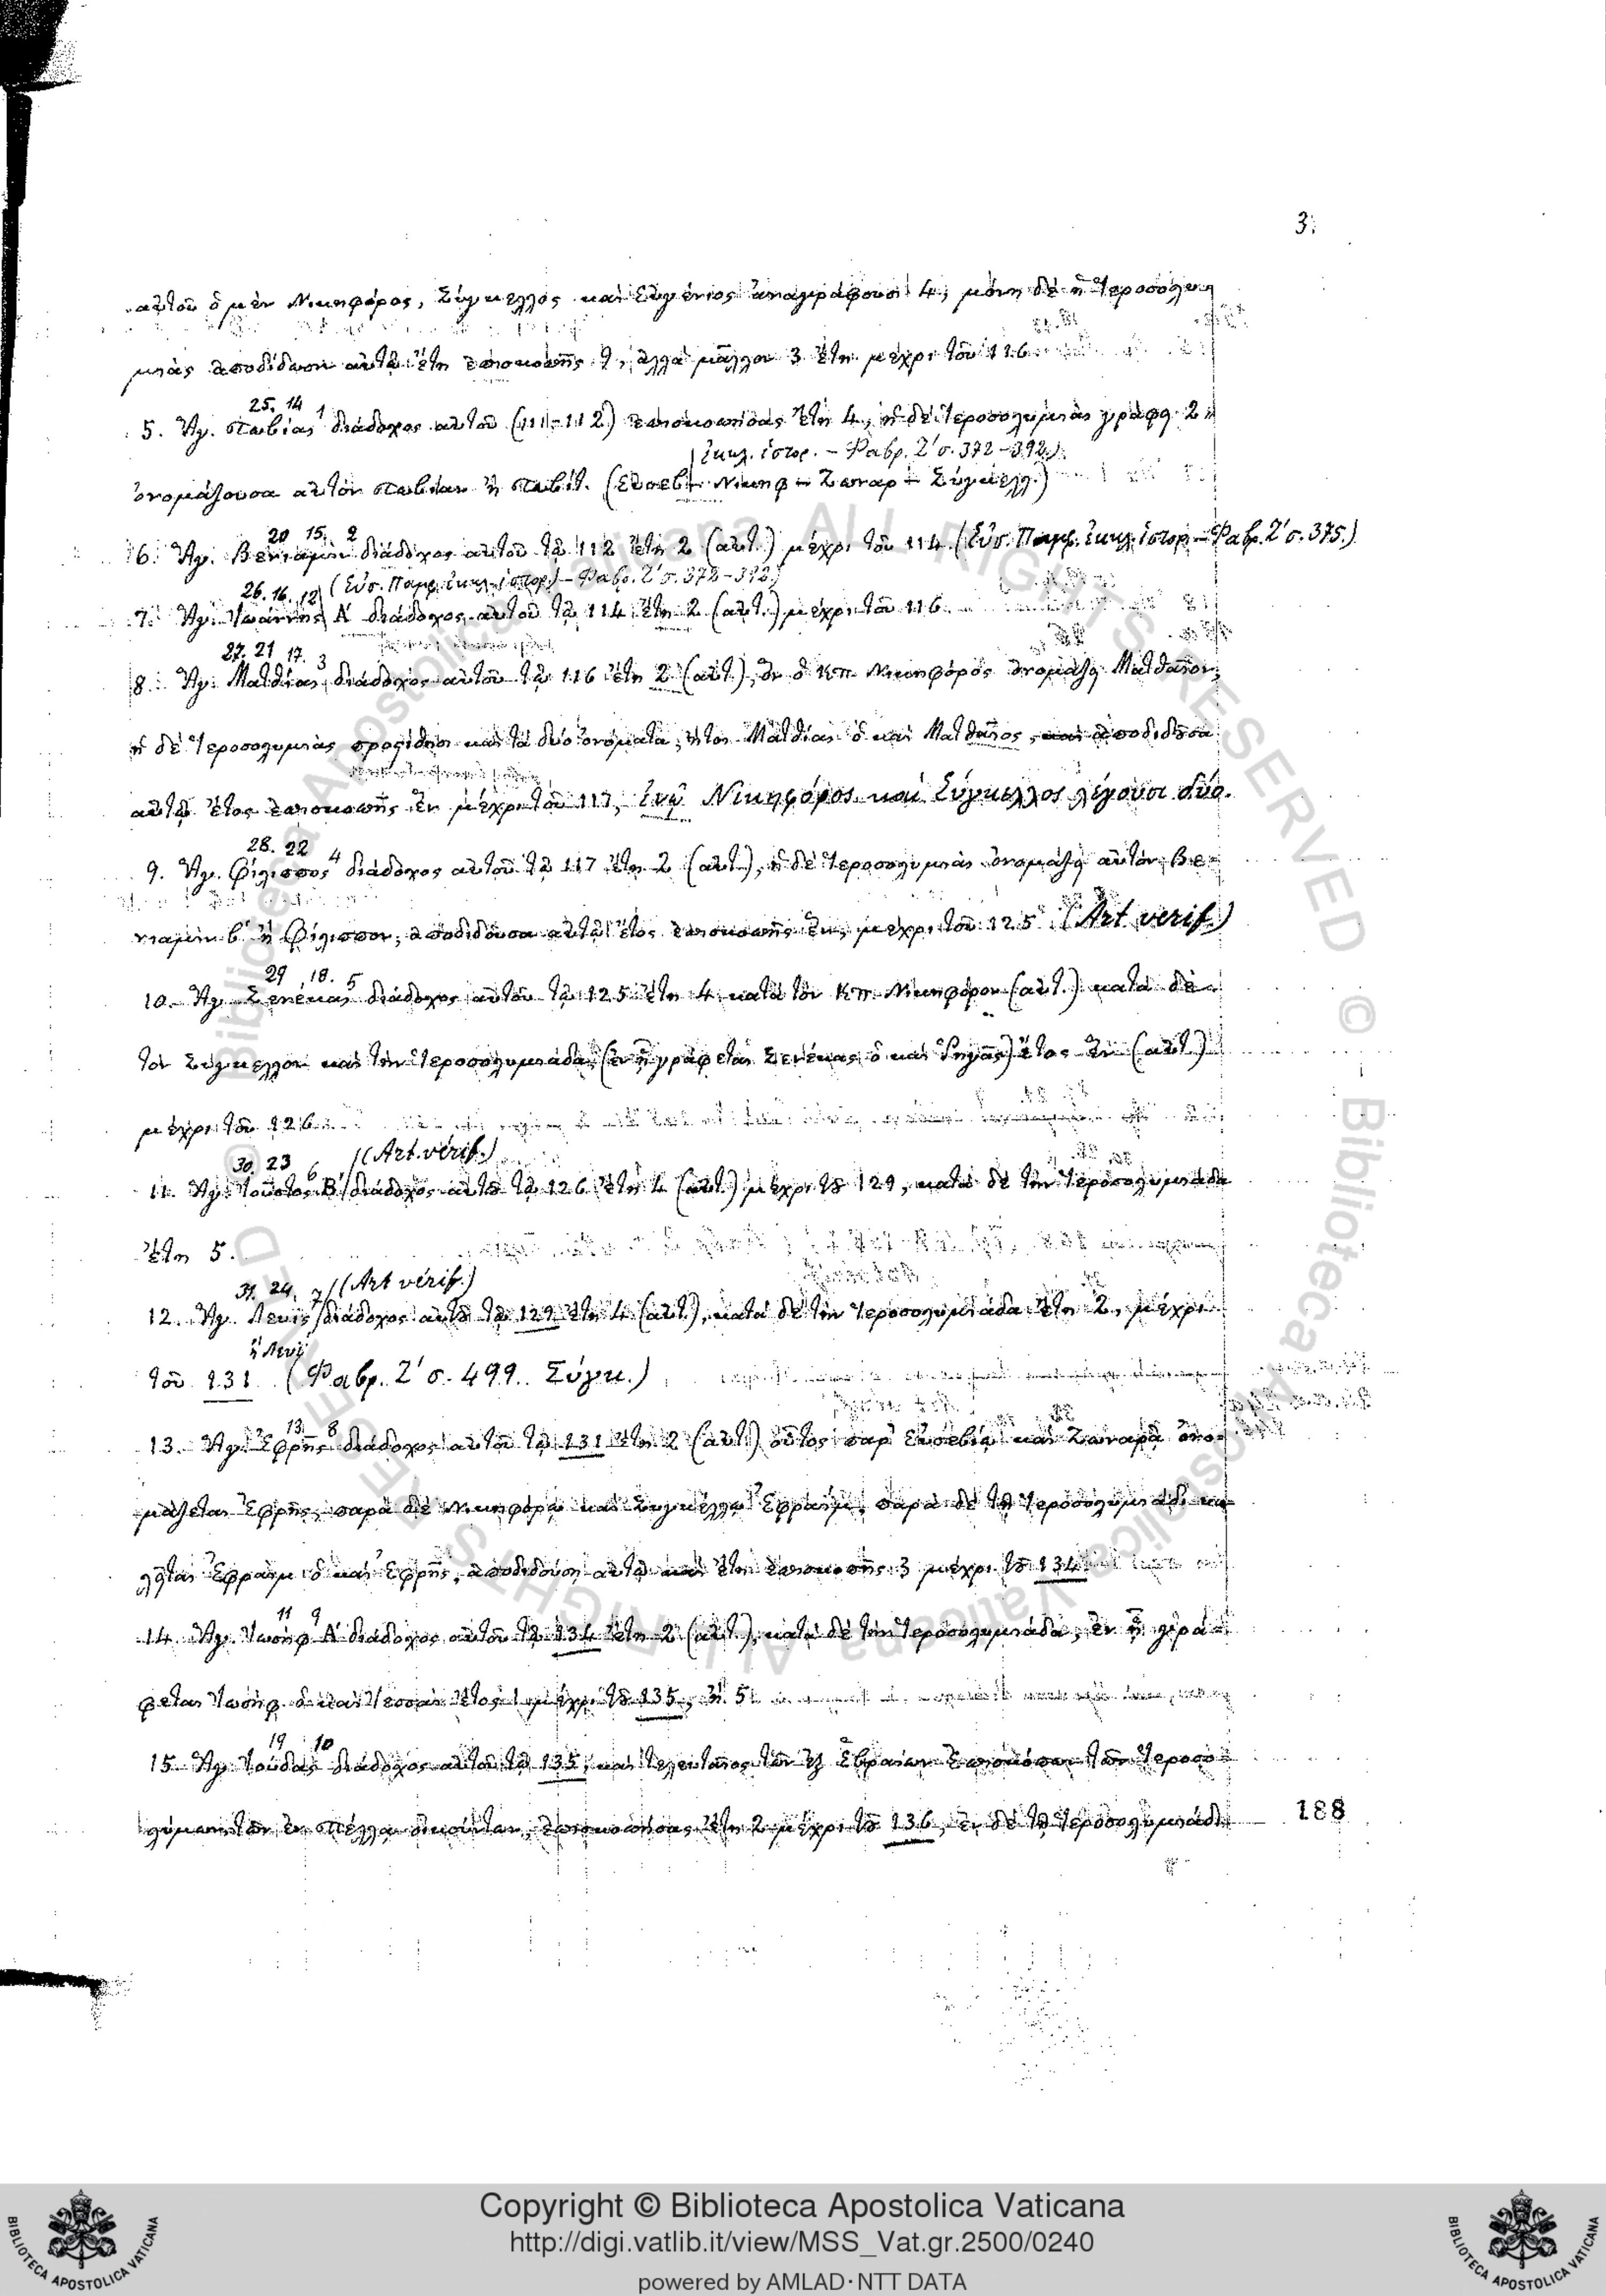 3.
αὐτοῦ ὁ μὲν Νικηφόρος, Σύγκελλος καὶ Εὐγένιος ἀναγράφουσι 4, μόνη δὲ ἡ Ἱεροσολυ
μιὰς ἀποδίδωσι αὐτῷ ἔτη ἐπισκοπῆς , ἀλλὰ μᾶλλον 3 ἔτη μέχρι τοῦ
25. 14 1
5. Ἅγ. διάδοχος αὐτοῦ (111-112) ἐπισκοπήσας ἔτη 4, ἡ δὲ Ἱεροσολυμιὰς γράφει 2
ἐκκλ. ἱστορ. – Φαβρ. Ζʹ σ. 372-392.)
ὀνομάζουσα αὐτὸν ἢ (Εὐσεβ. – Νικηφ – Ζωναρ – Σύγκελλ.)
20 15. 2
6. Ἅγ. Βενιαμὶν διάδοχος αὐτοῦ τῷ 112 ἔτη 2 (αὐτ.) μέχρι τοῦ 114 (Εὐσ. Παμφ. ἐκκλ. ἱστορ – Φαβρ. Ζʹ σ. 375.)
26. 16. 12 (Εὐσ. Παμφ. ἐκκλ. ἱστορ.) – Φαβρ. Ζʹ σ. 372-392)
7. Ἅγ. Ἰωάννης Αʹ διάδοχος αὐτοῦ τῷ 114 ἔτη 2 (αὐτ.) μέχρι τοῦ 116
27. 21 17. 3
8. Ἅγ. Ματθίας διάδοχος αὐτοῦ τῷ 116 ἔτη 2 (αὐτ.), ὃν ὁ Κπ. Νικηφόρος ὀνομάζει Ματθαῖον,
ἡ δὲ Ἱεροσολυμιὰς καὶ τὰ δύο ὀνόματα, ἤτοι Ματθίας ὁ καὶ Ματθαῖος, ἀποδιδοῦσα
αὐτῷ ἔτος ἐπισκοπῆς ἓν μέχρι τοῦ 117, ἐνῷ Νικηφόρος καὶ Σύγκελλος λέγουσι δύο.
28. 22 4
9. Ἅγ. Φίλιππος διάδοχος αὐτοῦ τῷ 117 ἔτη 2 (αὐτ.), ἡ δὲ Ἱεροσολυμιὰς ὀνομάζει αὐτὸν Βε-
νιαμὶν βʹ ἢ Φίλιππον, ἀποδιδοῦσα αὐτῷ ἔτος ἐπισκοπῆς ἕν, μέχρι τοῦ 125 (Art verif.)
29 18. 5
10. Ἅγ. Σενέκας διάδοχος αὐτοῦ τῷ 125 ἔτη 4 κατὰ τὸν Κπ. Νικηφόρον (αὐτ.) κατὰ δὲ
τὸν Σύγκελλον καὶ τὴν Ἱεροσολυμιάδα, (ἐν ᾗ γράφεται Σενέκας ὁ καὶ ) ἔτος ἓν (αὐτ.)
μέχρι τοῦ 126
30. 23 6 (Art. vérif.)
11. Ἅγ. Ἰοῦστος Βʹ διάδοχος αὐτοῦ τῷ 126 ἔτη 4 (αὐτ.) μέχρι τοῦ 129, κατὰ δὲ τὴν Ἱεροσολυμιάδα
ἔτη 5.
31. 24. 7 (Art vérif.)
12. Ἅγ. Λευὶς διάδοχος αὐτοῦ τῷ 129 ἔτη 4 (αὐτ.), κατὰ δὲ τὴν Ἱεροσολυμιάδα ἔτη 2, μέχρι
ἢ Λευΐ
τοῦ 131 (Φαβρ. Ζʹ σ. 499. Σύγκ.)
13. 8
13. Ἅγ. Ἐφρῆς διάδοχος αὐτοῦ τῷ 131 ἔτη 2 (αὐτ.) οὗτος παρ' Εὐσεβίῳ καὶ Ζωναρᾷ ὀνο-
μάζεται Ἐφρῆς, παρὰ δὲ Νικηφόρῳ καὶ Συγκέλλῳ Ἐφραΐμ, παρὰ δὲ τῇ Ἱεροσολυμιάδι κα
λεῖται Ἐφραῒμ ὁ καὶ Ἐφρῆς, ἀποδιδούσῃ αὐτῷ καὶ ἔτη ἐπισκοπῆς 3 μέχρι τοῦ 134
11 9
14. Ἅγ. Ἰωσὴφ Αʹ διάδοχος αὐτοῦ τῷ 134 ἔτη 2 (αὐτ.), κατὰ δὲ τὴν Ἱεροσολυμιάδα, ἐν ᾗ γρά-
φεται Ἰωσὴφ ὁ καὶ ἔτος 1 μέχρι τοῦ 135,
19 10
15. Ἅγ. Ἰούδας διάδοχος αὐτοῦ τῷ 135, καὶ τελευταῖος τῶν ἐξ Ἑβραίων ἐπισκόπων τῶν Ἱεροσο-
λύμων τῶν ἐν Πέλλᾳ , ἐπισκοπήσας ἔτη 2 μέχρι τοῦ 136, ἐν δὲ τῇ Ἱεροσολυμιάδι
188
Copyright © Biblioteca Apostolica Vaticana
http://digi.vatlib.it/view/MSS_Vat.gr.2500/0240
powered by AMLAD·NTT DATA